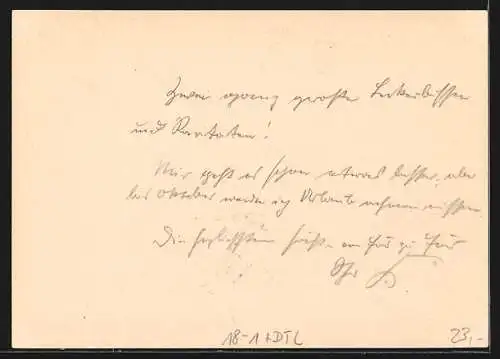 Zwei ganz große Leckerbissen
und Raritäten!
Mir geht es schon etwas besser, aber
bis Oktober werde ich Urlaub nehmen müssen.
Die herzlichsten Grüße von Haus zu Haus
Ihr
18-1 + DTL
23,-